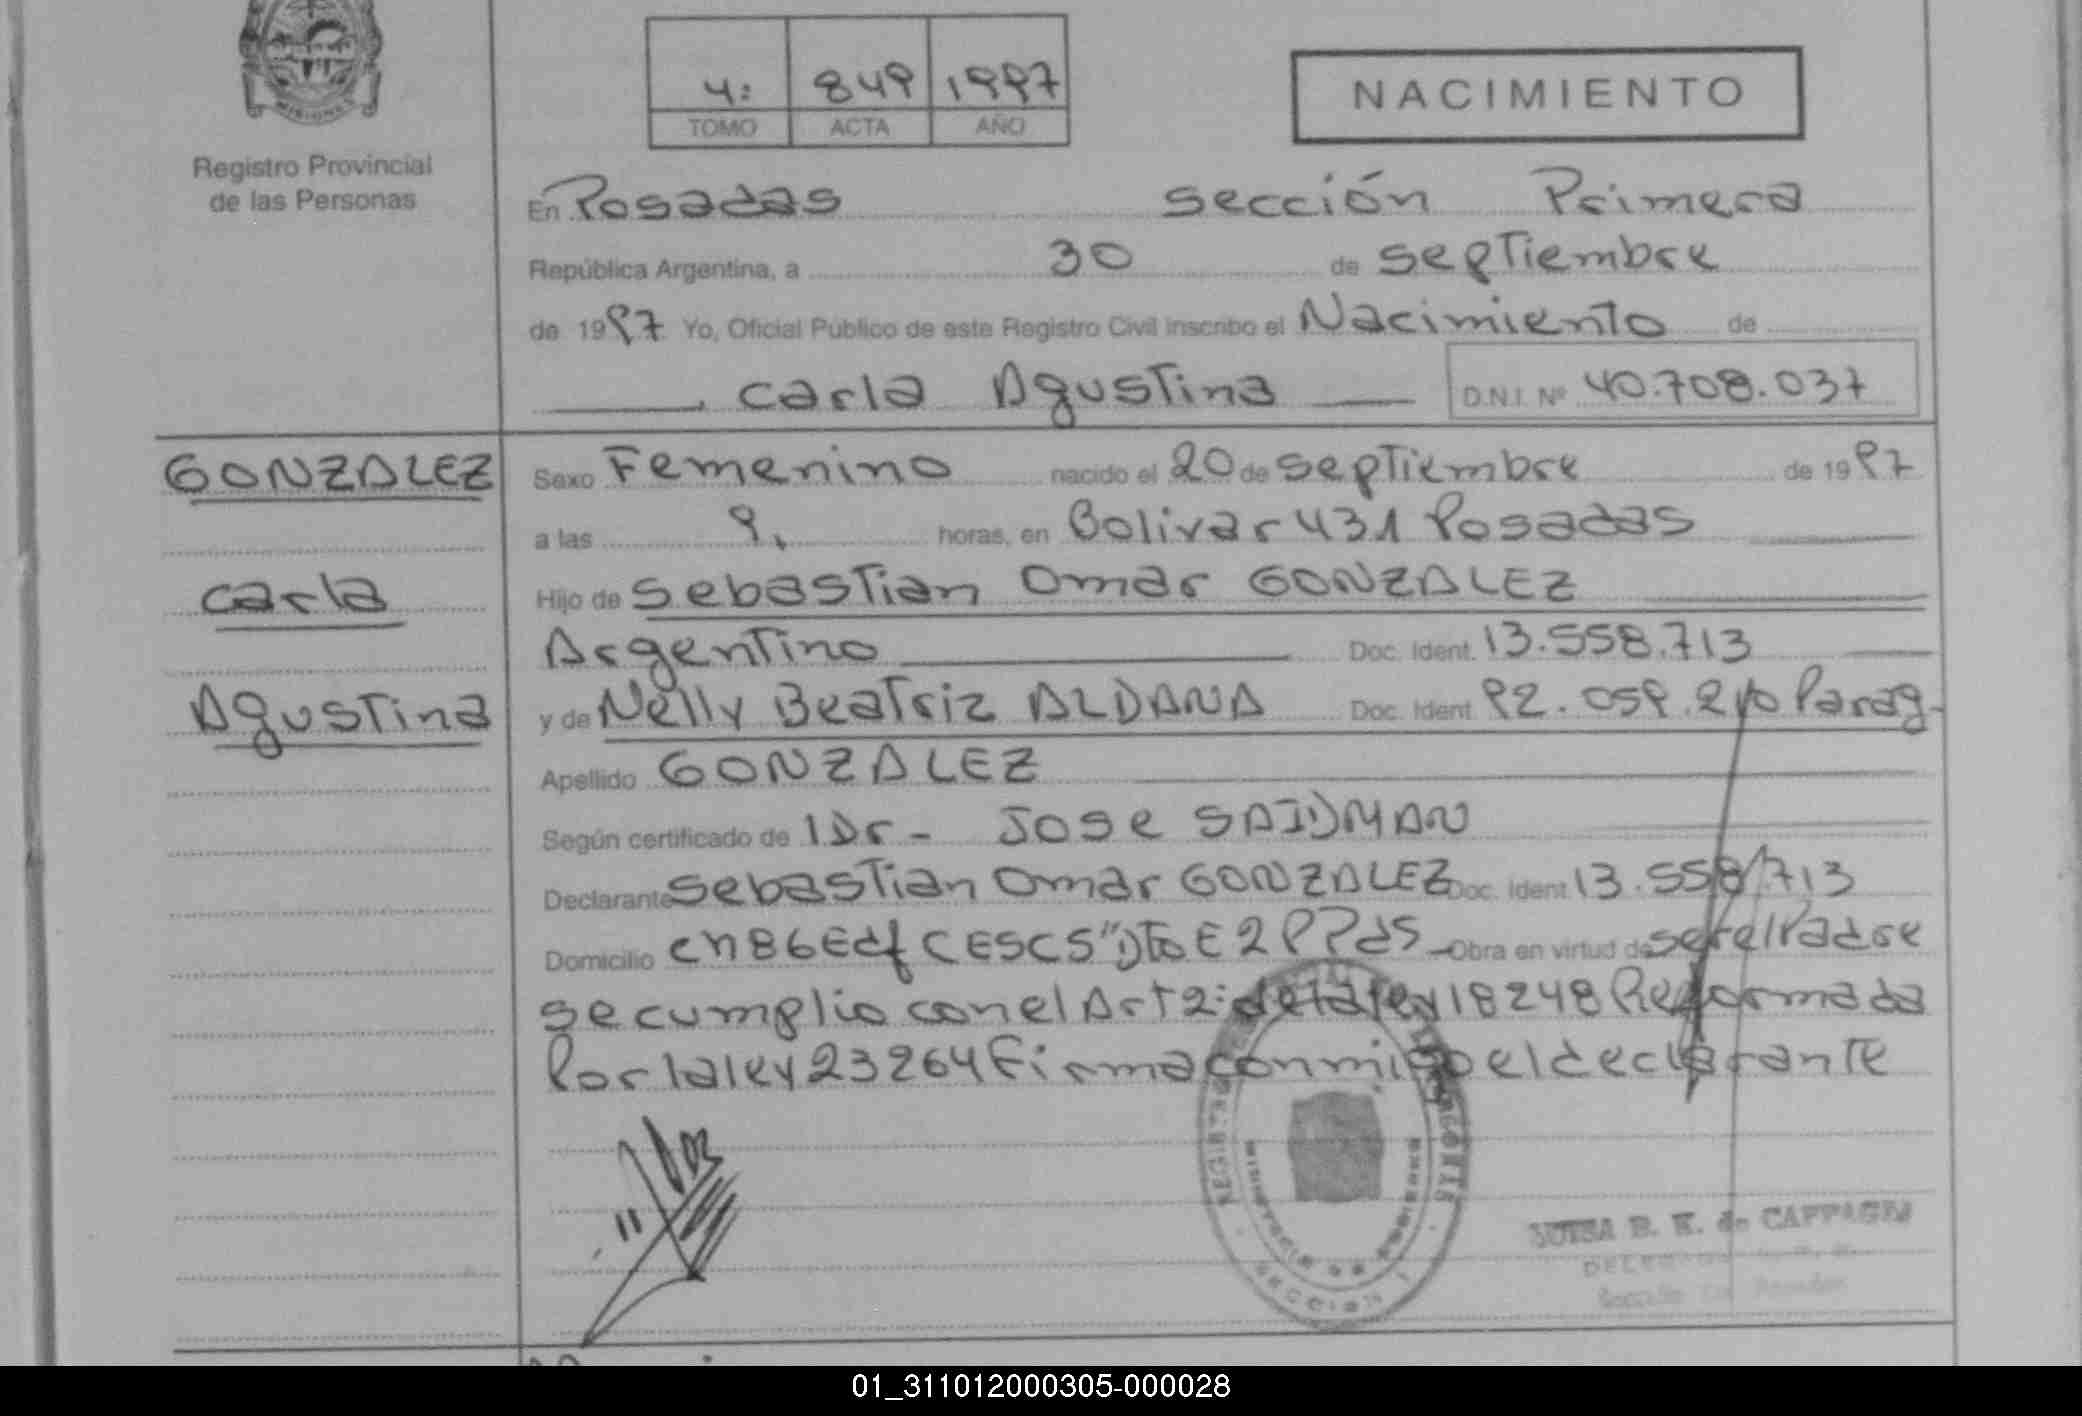 MISIONES
Registro Provincial
de las Personas
4: 849 1997
TOMO ACTA AÑO
NACIMIENTO
En Posadas sección Primera
República Argentina, a 30 de septiembre
de 1997 Yo, Oficial Público de este Registro Civil inscribo el Nacimiento de
Carla Agustina D.N.I. Nº 40.708.037
GONZALEZ
Carla
Agustina
Sexo Femenino nacido el 20 de septiembre de 1997
a las 9. horas, en Bolivar 431 Posadas
Hijo de Sebastian Omar GONZALEZ
Argentino Doc. Ident. 13.558.713
y de Nelly Beatriz ALDANA Doc. Ident. 92.059.210 Parag-
Apellido GONZALEZ
Según certificado de Dr- Jose SAIDMAN
Declarante Sebastian Omar GONZALEZ Doc. Ident. 13.558.713
Domicilio ch 86 Edf CESCS" Dto E 2 P Pdas - Obra en virtud de ser el Padre
se cumplio con el Art 2: de la ley 18248 Reformada
Por la ley 23264 firma conmigo el declarante
MINISTERIO DE GOBIERNO
SECCION 1
LUISA B. K. de CAPPAGLI